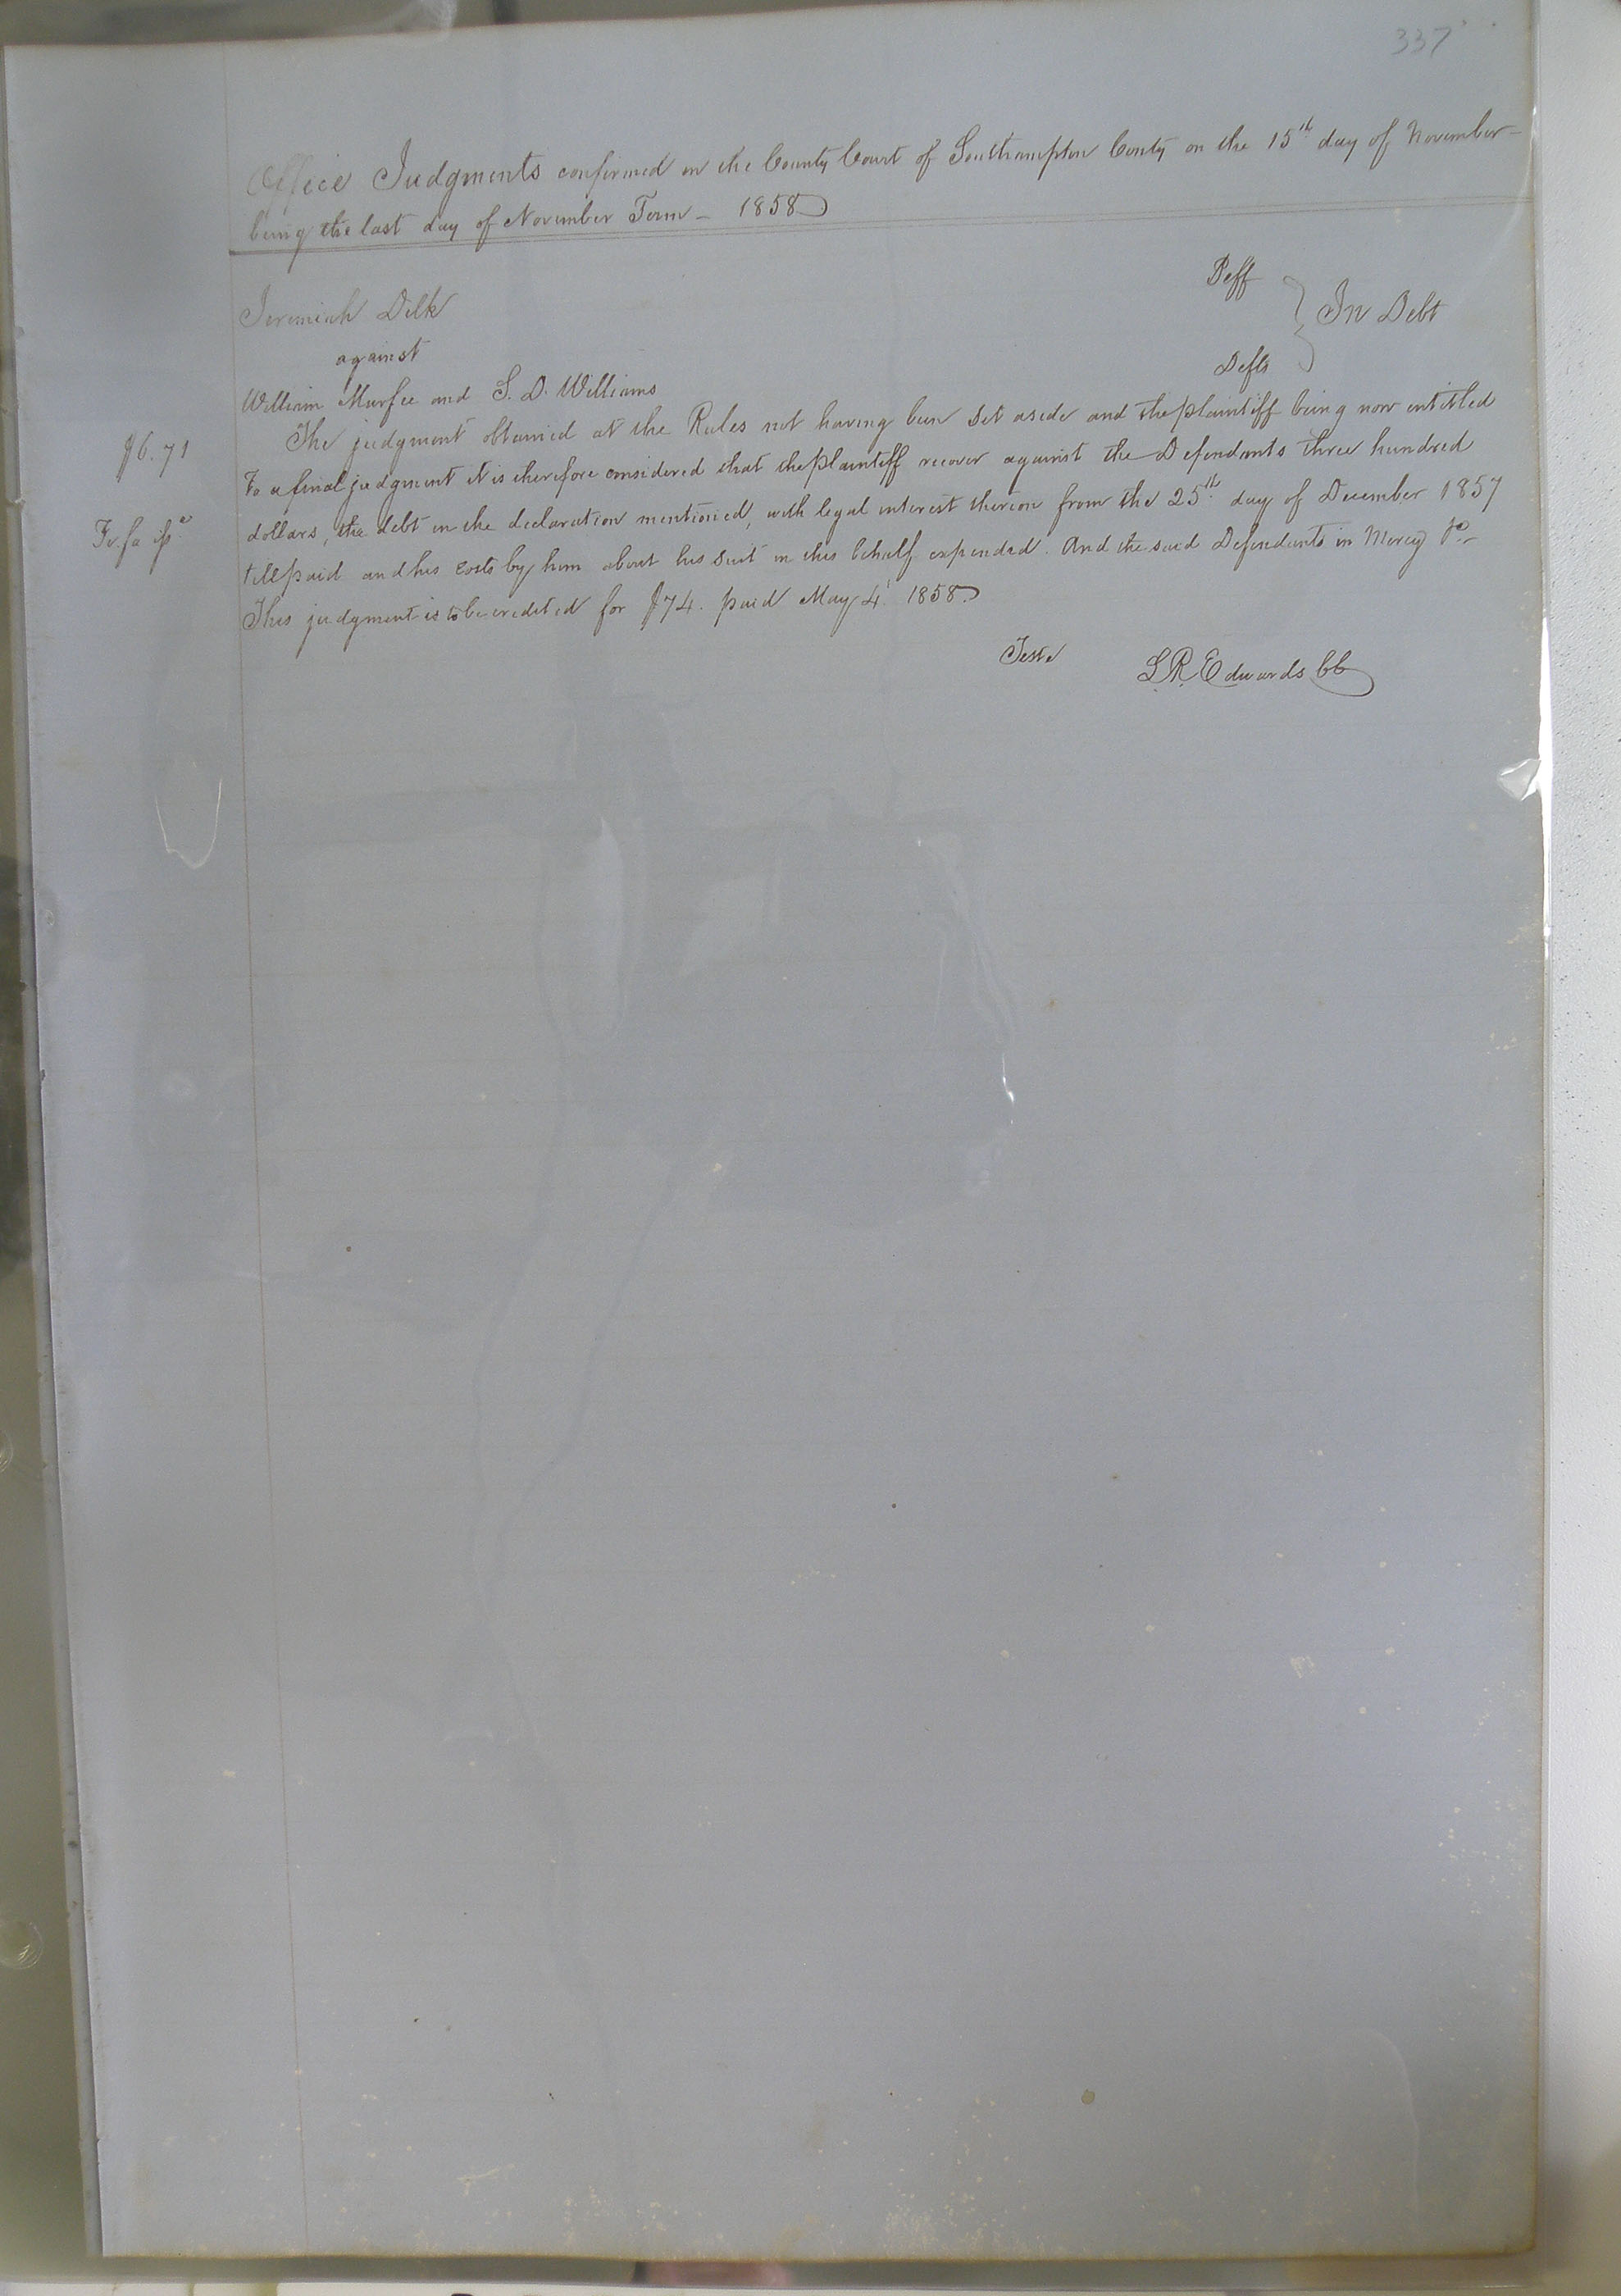 337
Office Judgments confirmed in the County Court of Southampton County on the 15th day of November
being the last day of November Term - 1858
Jeremiah Delk Plff
against In Debt
William Murfee and S. D. Williams Defts
The judgment obtained at the Rules not having been set aside and the plaintiff being now entitled
$6.71
To a final judgment it is therefore considered that the plaintiff recover against the Defendants three hundred
dollars, the debt in the declaration mentioned, with legal interest thereon from the 25th day of December 1857
Fi. fa
till paid and his costs by him about his suit in this behalf expended. And the said Defendants in Mercy &c -
This judgment is to be credited for $74. paid May 4 1858
Teste L R Edwards CC